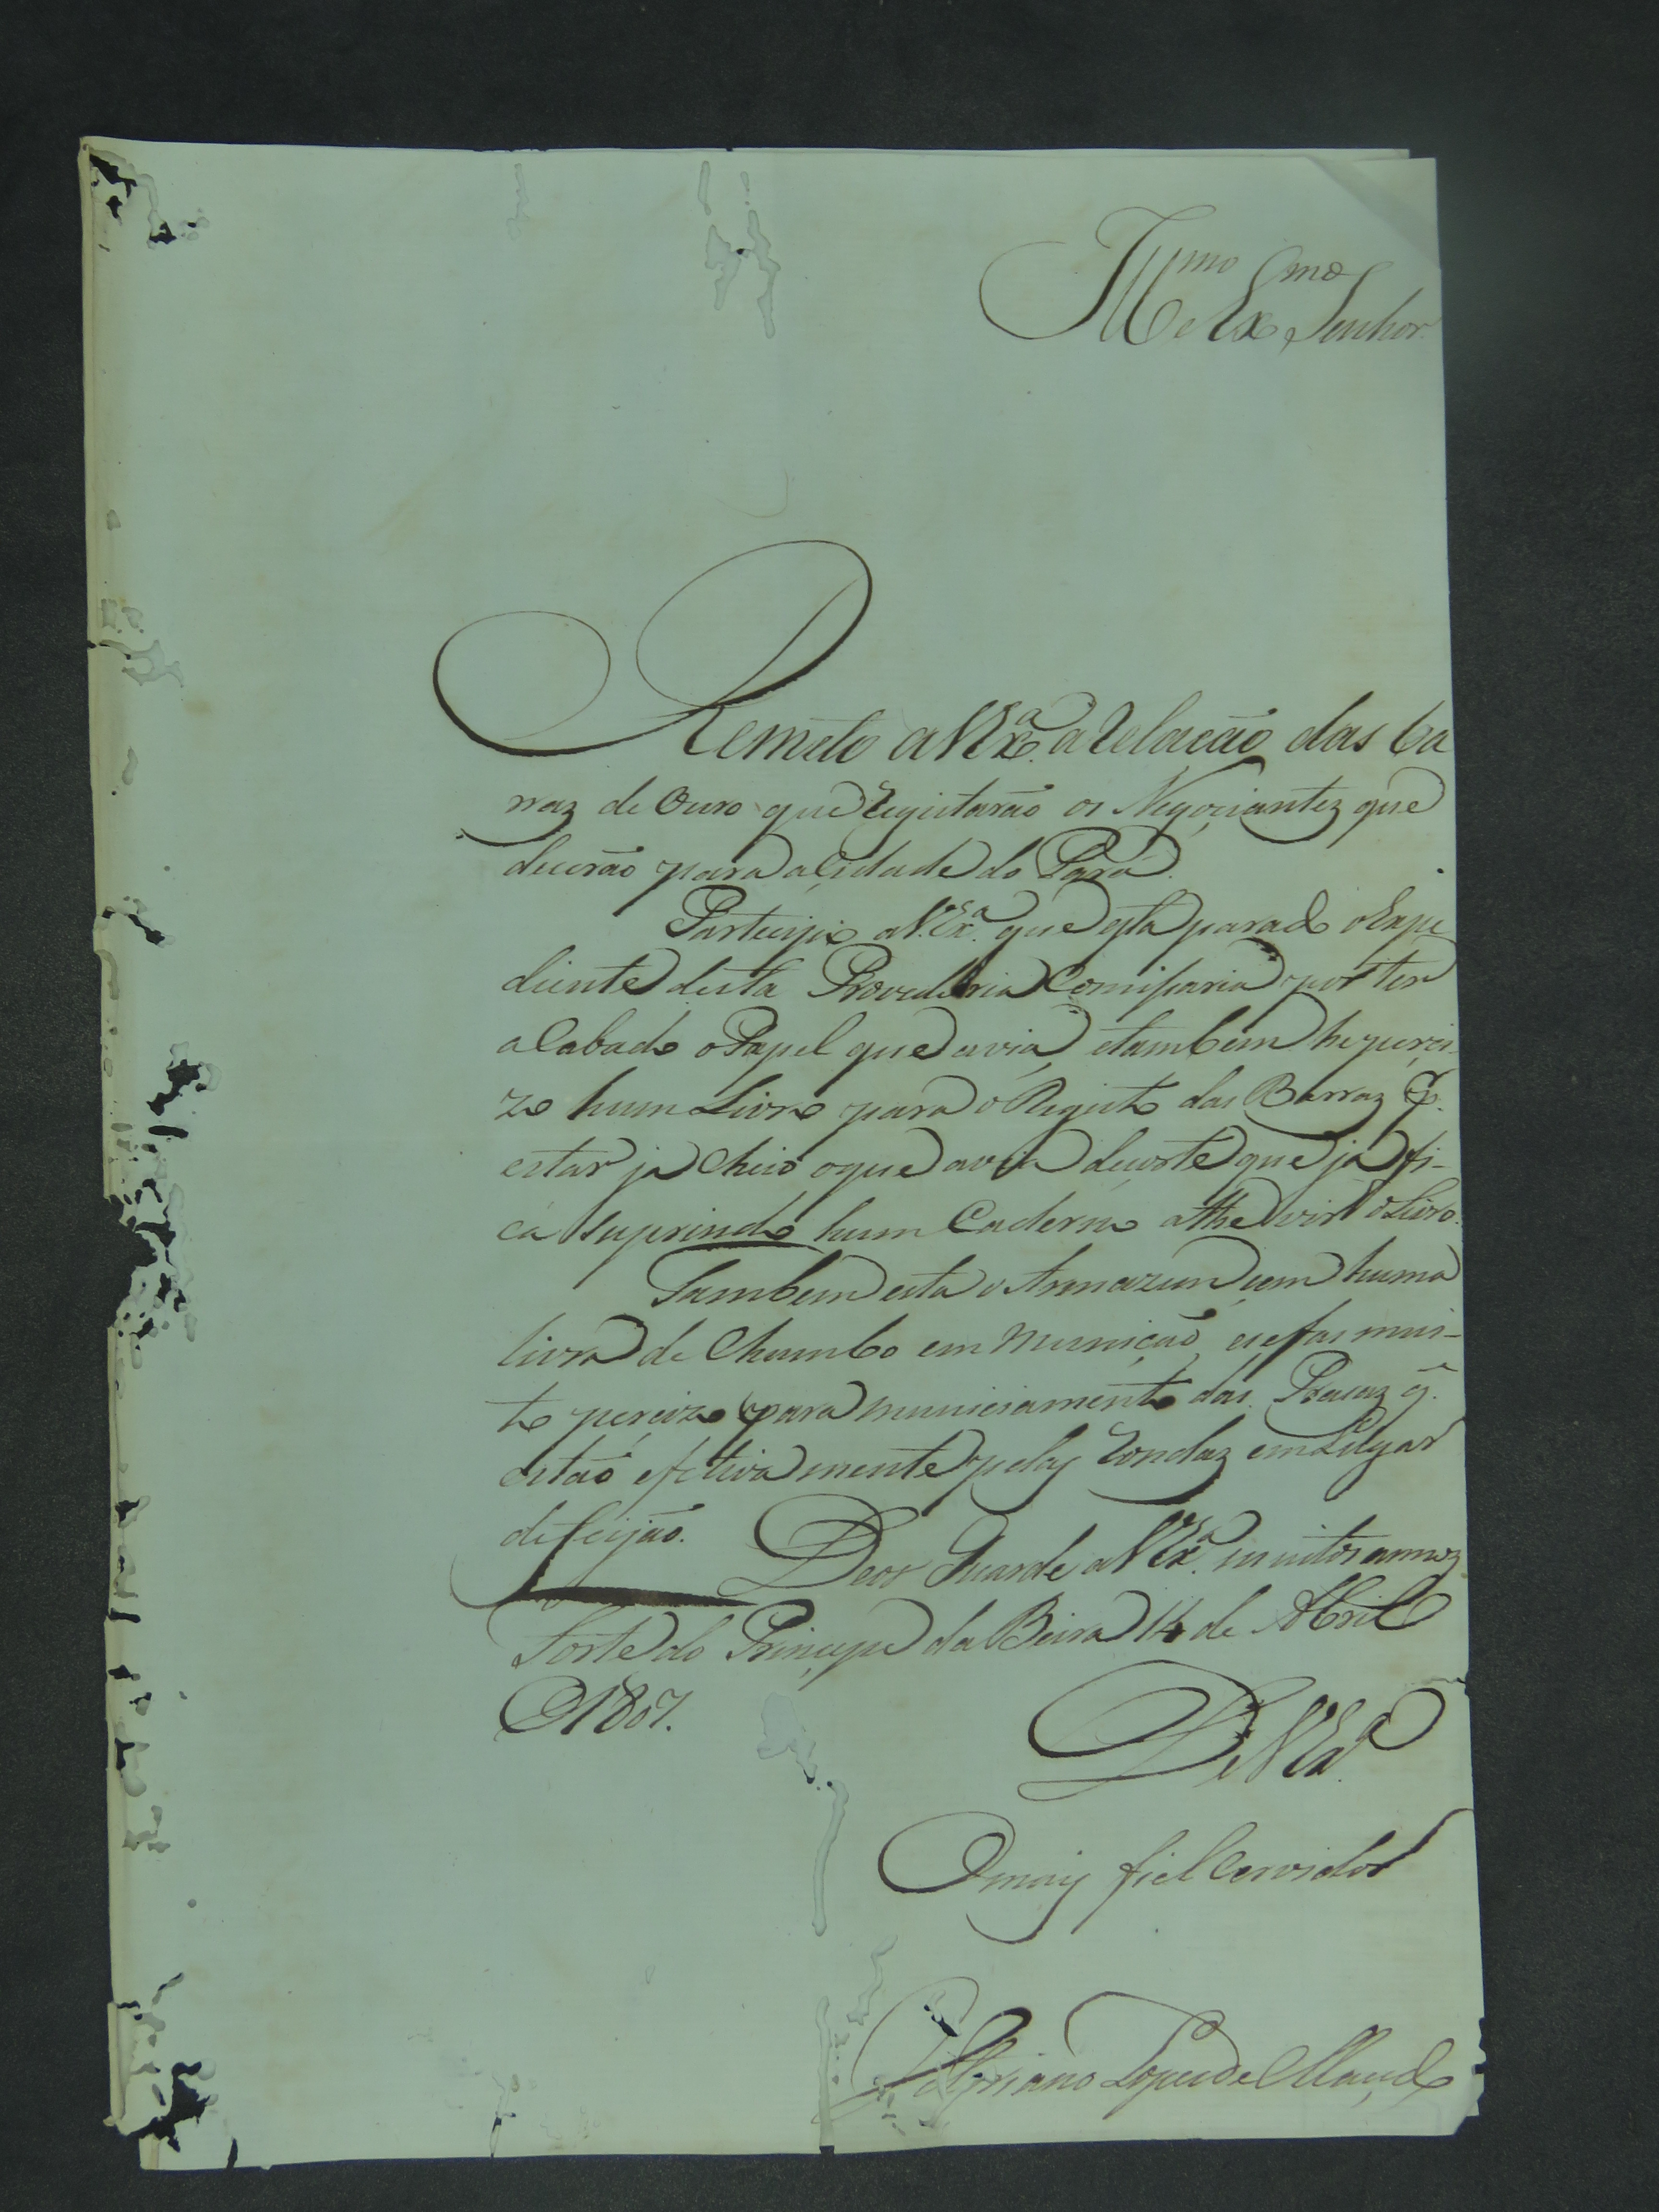 Ill.mo e Ex.mo Senhor
Remeto a V Ex.a a relacaõ das ba
rraz de Ouro que registaraõ os Negociantez que
deceraõ para a Cidade do Pará.
Partecipo a V. Ex.a que esta parado o Expe
diente desta Provedoria Comissaria por ter
acabado o Papel que avia, e tambem he perci
zo hum Livro para o Registo das Barraz p.
estar já cheio o que avia de sorte que já fi-
ca suprindo hum Caderno athe vir o Livro.
Tambem esta o Armazem sem huma
livra de Chumbo em Municaõ, e se fas mui-
to percizo para municiamento das Pracaz q.
estaõ efectivamente pelas rondaz em Lugar
de feijaõ. Deos Guarde a V Ex.a muitos annoz
Forte do Principe da Beira 14 de Abril
de 1807.
De V Ex.a
O maiz fiel Cervidor
Cypriano Lopes de